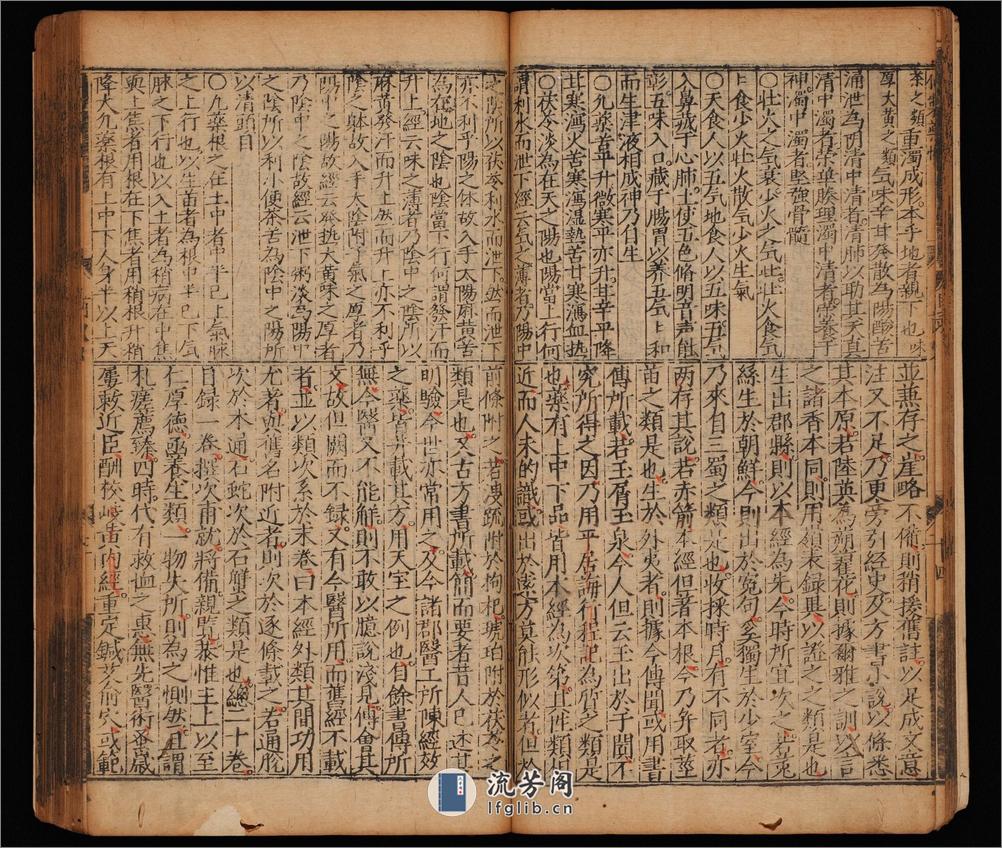 茶之類重濁成形本乎地者親下也味
厚大黄之類氣味辛甘發散為陽酸苦
涌泄為阴清中清者清肺以助其天真
清中濁者荣華腠理濁中清者荣养于
神濁中濁者堅強骨髓
〇壮火之气衰少火之气壮壮火食气
气食少火壮火散气少火生氣
〇天食人以五气地食人以五味五气
入鼻藏于心肺上使五色脩明音声能
彰五味入口藏于腸胃以养五气气和
而生津液相成神乃自生
〇凡藥辛平升微寒平亦升甘辛平降
甘寒瀉火苦寒瀉温熱苦甘寒瀉血热
〇茯苓淡為在天之陽也陽當上行何
謂利水而泄下經云气之薄者乃陽中
並兼存之崖略不俻則稍援舊註以足成文意
注又不足乃更旁引經史及方書小說以條悉
其本原若陸英為蒴藋花則據爾雅之訓以言
之諸香本同則用嶺表録異以證之之類是也
生出郡縣則以本經為先今時所宜次之若菟
絲生於朝鮮今則出於冤句奚獨生於少室今
乃來自三蜀之類是也收採時月有不同者亦
两存其說若赤箭本經但著本根今乃并取莖
苗之類是也生於外夷者則據今傳聞或用書
傳所載若玉屑玉泉今人但云玉出於于闐不
究所得之因乃用平居誨行程記為質之類是
也藥有上中下品皆用本經為次第其性類相
近而人未的識或出於逺方莫能形似者但於
之陰所以茯苓利水而泄下然而泄下
亦不利乎陽之体故入手太陽麻黄苦
為在地之陰也陰當下行何謂發汗而
升上經云味之薄者乃陰中之陽所以
麻黄發汗而升上然而升上亦不利乎
陰之躰故入手太陰附子氣之厚者乃
陽中之陽故經云發热大黄味之厚者
乃陰中之陰故經云泄下粥淡為陽中
之陰所以利小便茶苦為陰中之陽所
以清頭目
〇凡藥根之在土中者中半已上氣脉
之上行也以生苗者為根中半已下气
脉之下行也以入土者為稍病在中焦
與上焦者用根在下焦者用稍根升稍
降大凡藥根有上中下人身半以上天
前條附之若溲疏附於枸杞琥珀附於茯苓之
類是也又古方書所載簡而要者昔人已述其
明驗今世亦常用之及今諸郡醫工所陳經效
之藥皆并載其方用天宝之例也自餘書傳所
無今醫又不能觧則不敢以臆説淺見傅會其
文故但闕而不録又有今醫所用而舊經不載
者並以類次系於末卷曰本經外類其間功用
尤著與舊名附近者則次於逐條載之若通脱
次於木通石蛇次於石蟹之類是也緫二十卷
目録一卷撰次甫就將備親覧恭惟主上以至
仁厚德函養生類一物失所則為之惻然且謂
札瘥薦臻四時代有救血之惠無先醫術蚤歳
屢敕近臣酬校岐黄内經重定鍼艾俞穴或範
流芳阁
lfglib.cn